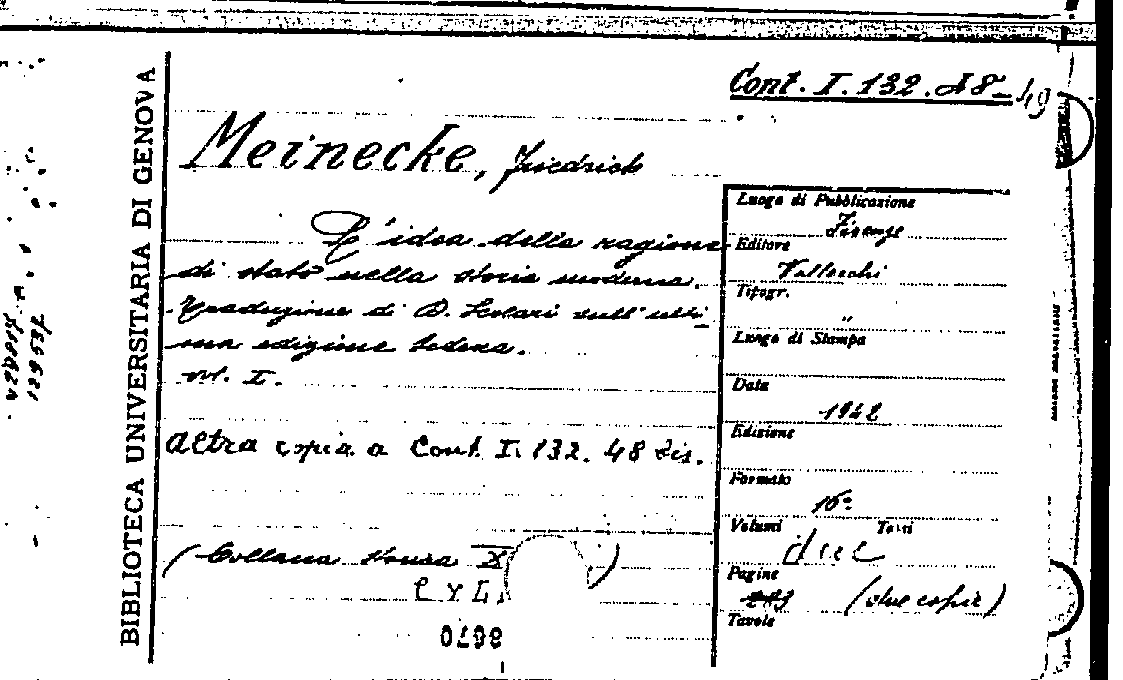 Cont. I. 132. 48-49
BIBLIOTECA UNIVERSITARIA DI GENOVA
Meinecke, Friedrich
L'idea della ragione
di stato nella storia moderna.
Traduzione di D. Scolari sull'ulti-
ma edizione tedesca.
vol. I.
altra copia a Cont. I. 132. 48 bis.
(Collana storica X
CVI
0798
Luogo di Pubblicazione
Firenze
Editore
Vallecchi
Tipogr.
"
Luogo di Stampa
Data
1942
Edizione
Formato
16°
Volumi Tomi
due
Pagine
(due copie)
Tavole